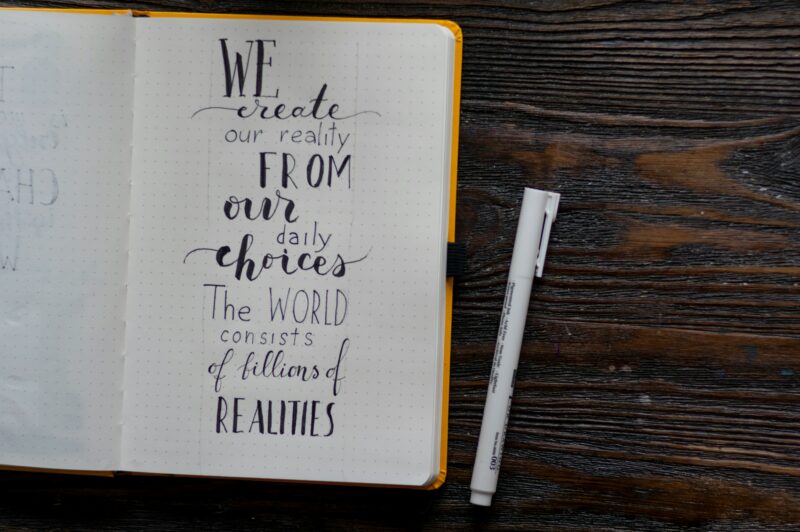 WE
create
our reality
FROM
our
daily
choices
The WORLD
consists
of billions of
REALITIES
003